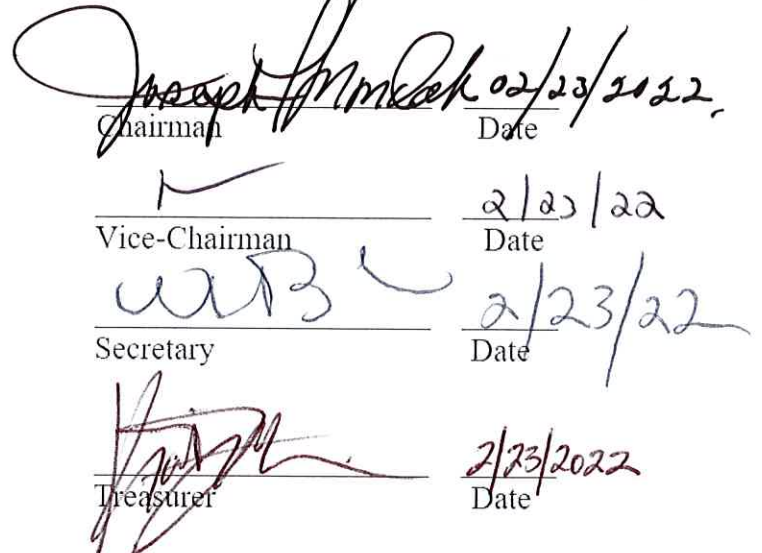 Joseph 02/23/2022
Chairman Date
2/23/22
Vice-Chairman Date
2/23/22
Secretary Date
2/23/2022
Treasurer Date